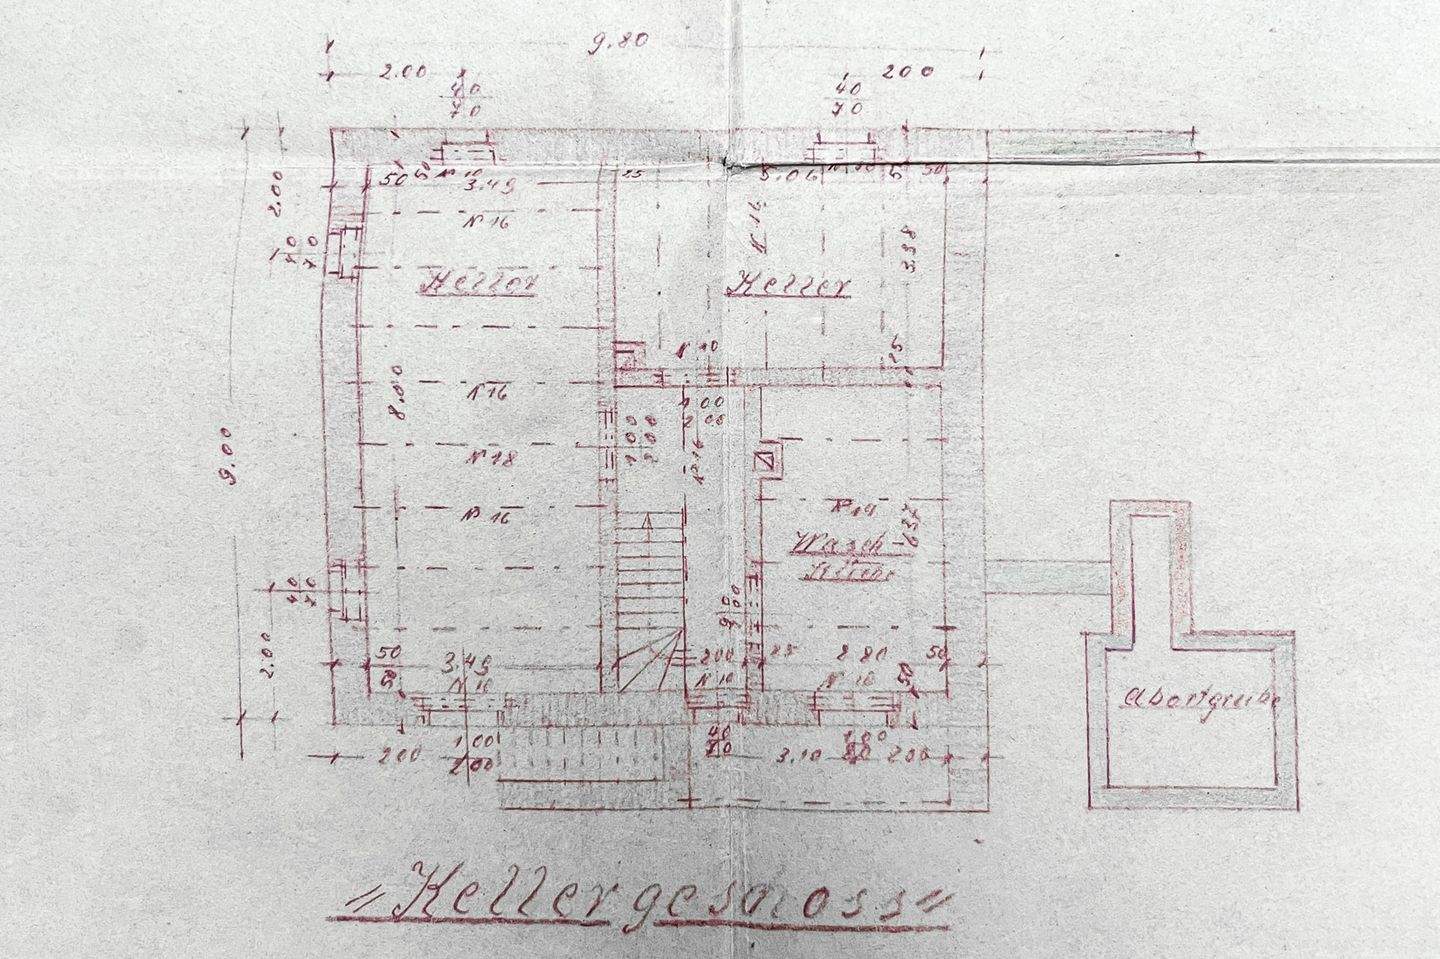 9.80
2.00
200
40
70
40
70
50
3.49
25
5.06
50
2.00
N 16
N 16
3.38
Keller
Keller
40
70
N 10
25
8.00
N 16
1.00
2.00
1.00
2.00
N 16
9.00
N 18
N 16
Wasch-
40
70
90
2.00
50
3.49
200
25
2.80
50
N 10
N 10
N 10
50
Abortgrube
200
1.00
2.00
40
70
3.10
1.00
200
"Kellergeschoss"